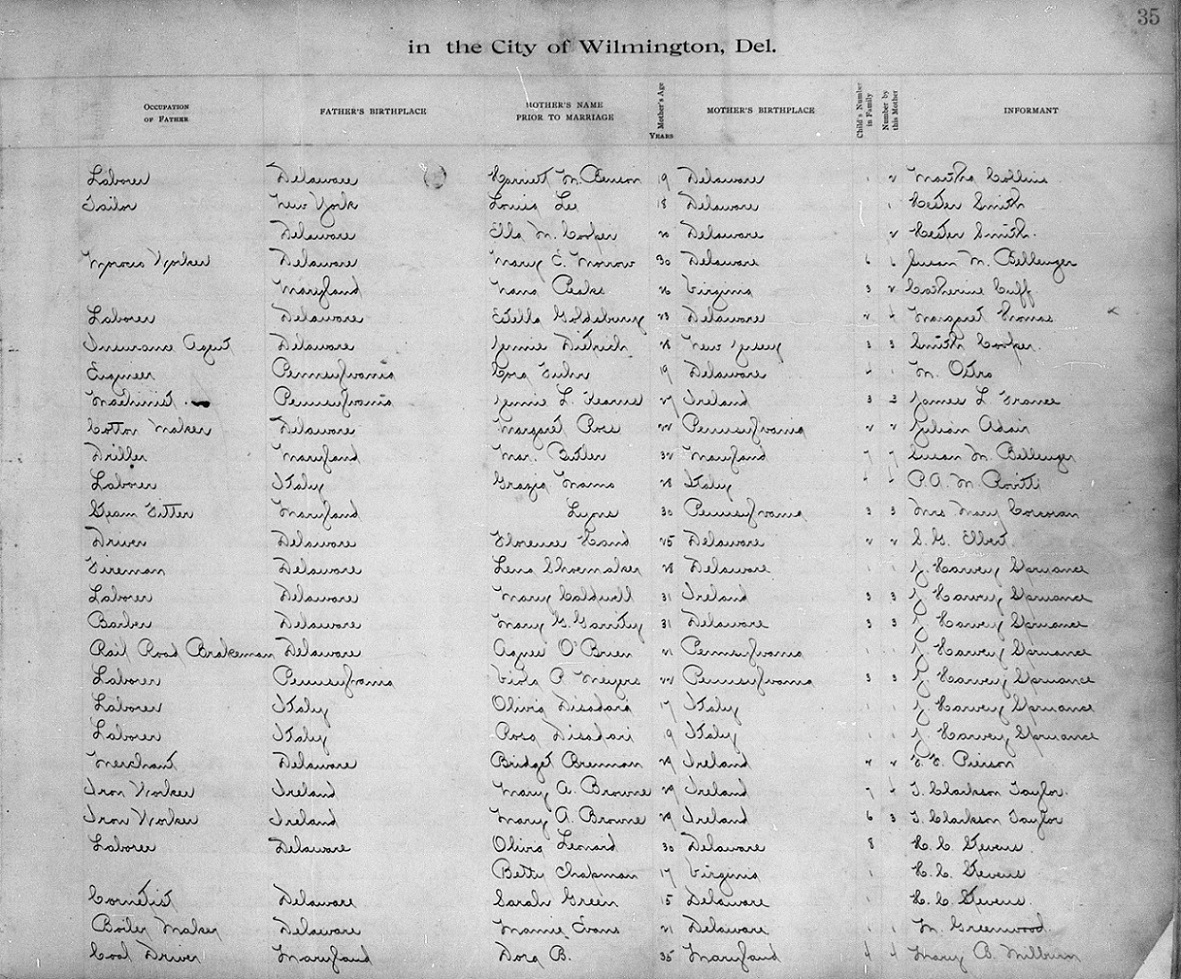 35
in the City of Wilmington, Del.
OCCUPATION OF FATHER FATHER'S BIRTHPLACE MOTHER'S NAME PRIOR TO MARRIAGE Mother's Age YEARS MOTHER'S BIRTHPLACE Child's Number in Family Number by this Mother INFORMANT
Laborer Delaware Harriett M. Benson 19 Delaware 1 2 Martha Collins
Tailor New York Louisa Lee 18 Delaware 1 Hester Smith
Delaware Ella M. Cooker 20 Delaware 2 Hester Smith
Morocco Worker Delaware Mary E. Morrow 30 Delaware 6 6 Susan M. Bellenger
Maryland Nana Peake 26 Virginia 3 2 Catherine Cuff
Laborer Delaware Estella Goldsberry 23 Delaware 2 Margaret Thomas
Insurance Agent Delaware Jennie Dietrich 28 New Jersey 3 3 Smith Cooper
Engineer Pennsylvania Cora 19 Delaware 1 M. Otto
Machinist Pennsylvania Jennie L. Fearns 27 Ireland 3 3 James L. France
Cotton Maker Delaware Margaret Ross 22 Pennsylvania 2 2 Julian Adair
Driller Maryland Mar. Butler 32 Maryland 7 7 Susan M. Bellenger
Laborer Italy Grazia 28 Italy P. A. M. Rovitti
Steam Fitter Maryland Lyons 30 Pennsylvania 3 3 Mrs Mary Corcoran
Driver Delaware Florence Hand 25 Delaware 2 2 S. G. Elbert
Fireman Delaware Lena Shoemaker 28 Delaware 1 1 J. Harvey Spruance
Laborer Delaware Mary Caldwell 31 Ireland 3 3 J. Harvey Spruance
Barber Delaware Mary G. Garrity 31 Delaware 3 3 J. Harvey Spruance
Rail Road Brakeman Delaware Agnes O'Brien 21 Pennsylvania 1 1 J. Harvey Spruance
Laborer Pennsylvania Viola P. Meyers 22 Pennsylvania 3 3 J. Harvey Spruance
Laborer Italy Olivia Disapari 17 Italy 1 1 J. Harvey Spruance
Laborer Italy Rosa Disapari 19 Italy 1 1 J. Harvey Spruance
Merchant Delaware Bridget Brennan 29 Ireland 2 2 E. E. Pierson
Iron Worker Ireland Mary A. Browne 29 Ireland 7 4 T. Clarkson Taylor
Iron Worker Ireland Mary A. Browne 29 Ireland 6 3 T. Clarkson Taylor
Laborer Delaware Olivia Leonard 30 Delaware 8 H. C. Stevens
Betty Chapman 17 Virginia 1 H. C. Stevens
Cornetist Delaware Sarah Green 15 Delaware 1 H. C. Stevens
Boiler Maker Delaware Mamie Evans 21 Delaware 1 1 M. Greenwood
Coal Driver Maryland Dora B. 35 Maryland 4 4 Mary B. Milburn